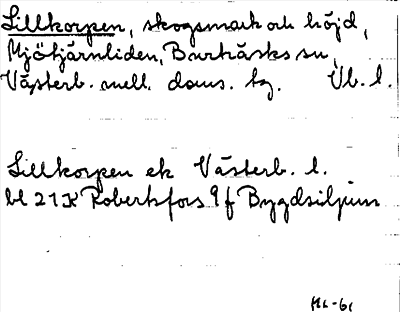 Lillkorpen, skogsmark och höjd,
Mjötjärnliden, Burträsks sn,
Västerb. mell. doms. tg. Vb. l.
Lillkorpen ek Västerb. l.
bl 21K Robertsfors 9f Bygdsiljum